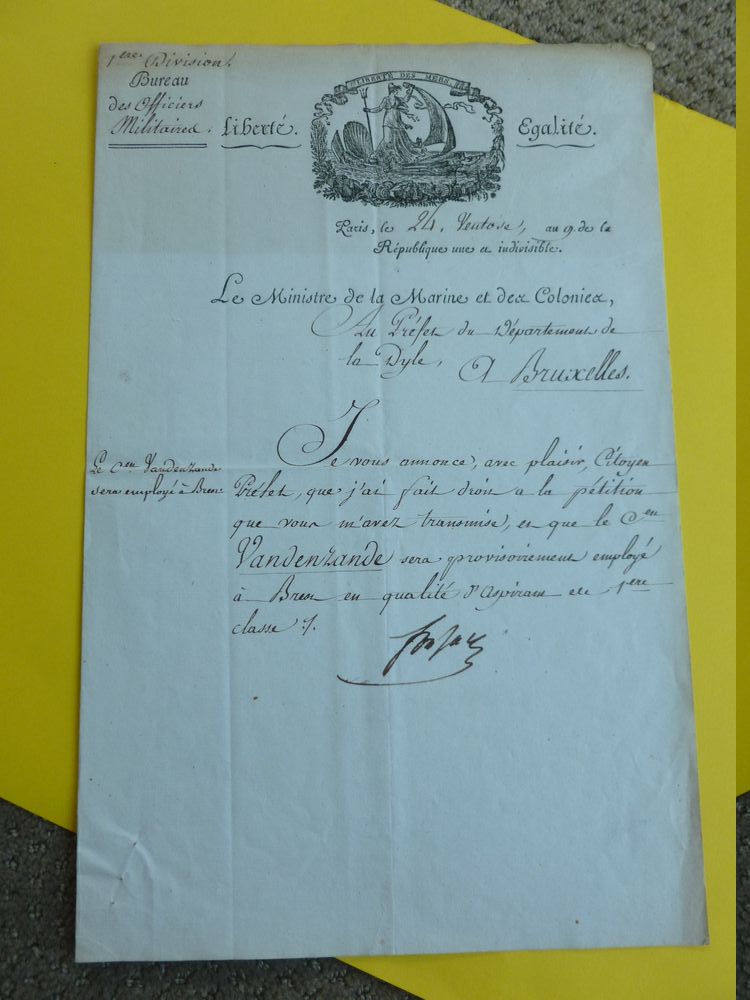 1ere Division.
Bureau
des Officiers
Militaires.
Liberté.
LIBERTÉ DES MERS.
Egalité.
Paris, le 24. Ventose, an 9. de la
République une et indivisible.
Le Ministre de la Marine et des Colonies,
Au Préfet du Département de
la Dyle, A Bruxelles.
Le Cen Vandenzande
sera employé à Brest
Je vous annonce, avec plaisir, Citoyen
Préfet, que j'ai fait droit a la pétition
que vous m'avez transmise, et que le Cen
Vandenzande sera provisoirement employé
à Brest en qualité d'Aspirant de 1ere
classe ./.